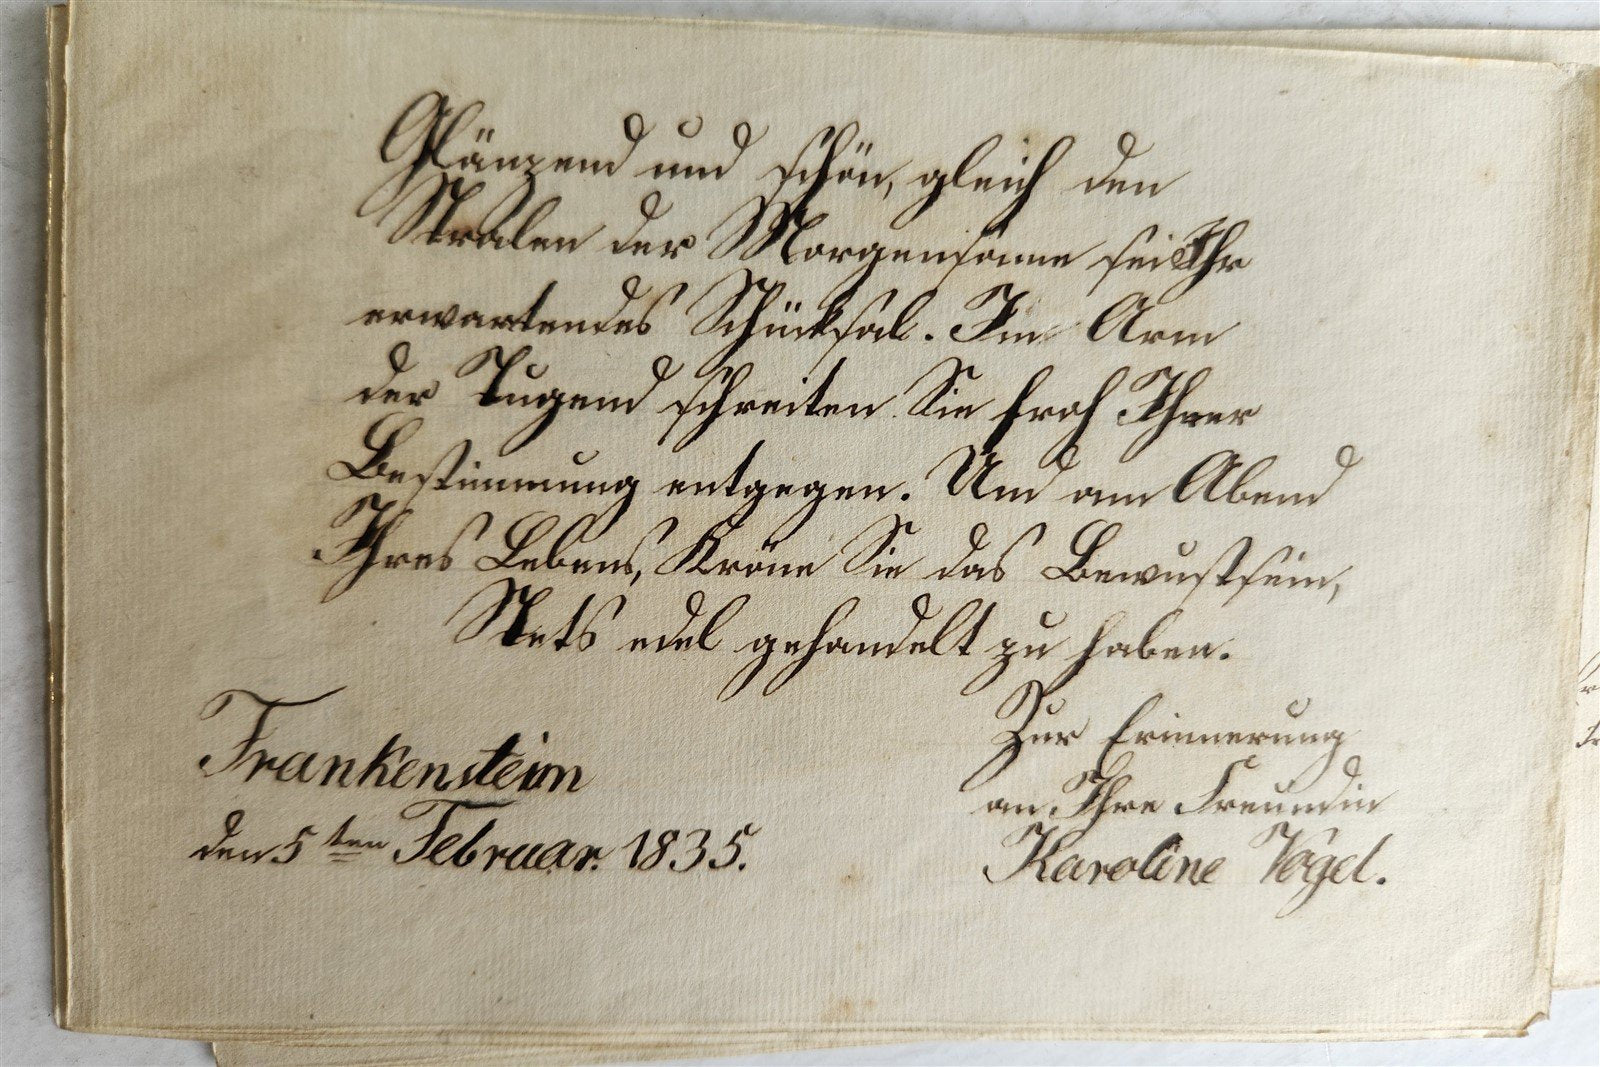 Glänzend und schön, gleich den
Stralen der Morgensonne sei Ihr
erwartendes Schücksal. Im Arm
der Tugend schreiten Sie froh Ihrer
Bestimmung entgegen. Und am Abend
Ihres Lebens, Kröne Sie das Bewustsein,
Stets edel gehandelt zu haben.
Frankenstein
den 5ten Februar. 1835.
Zur Erinnerung
an Ihre Freundin
Karoline Vogel.